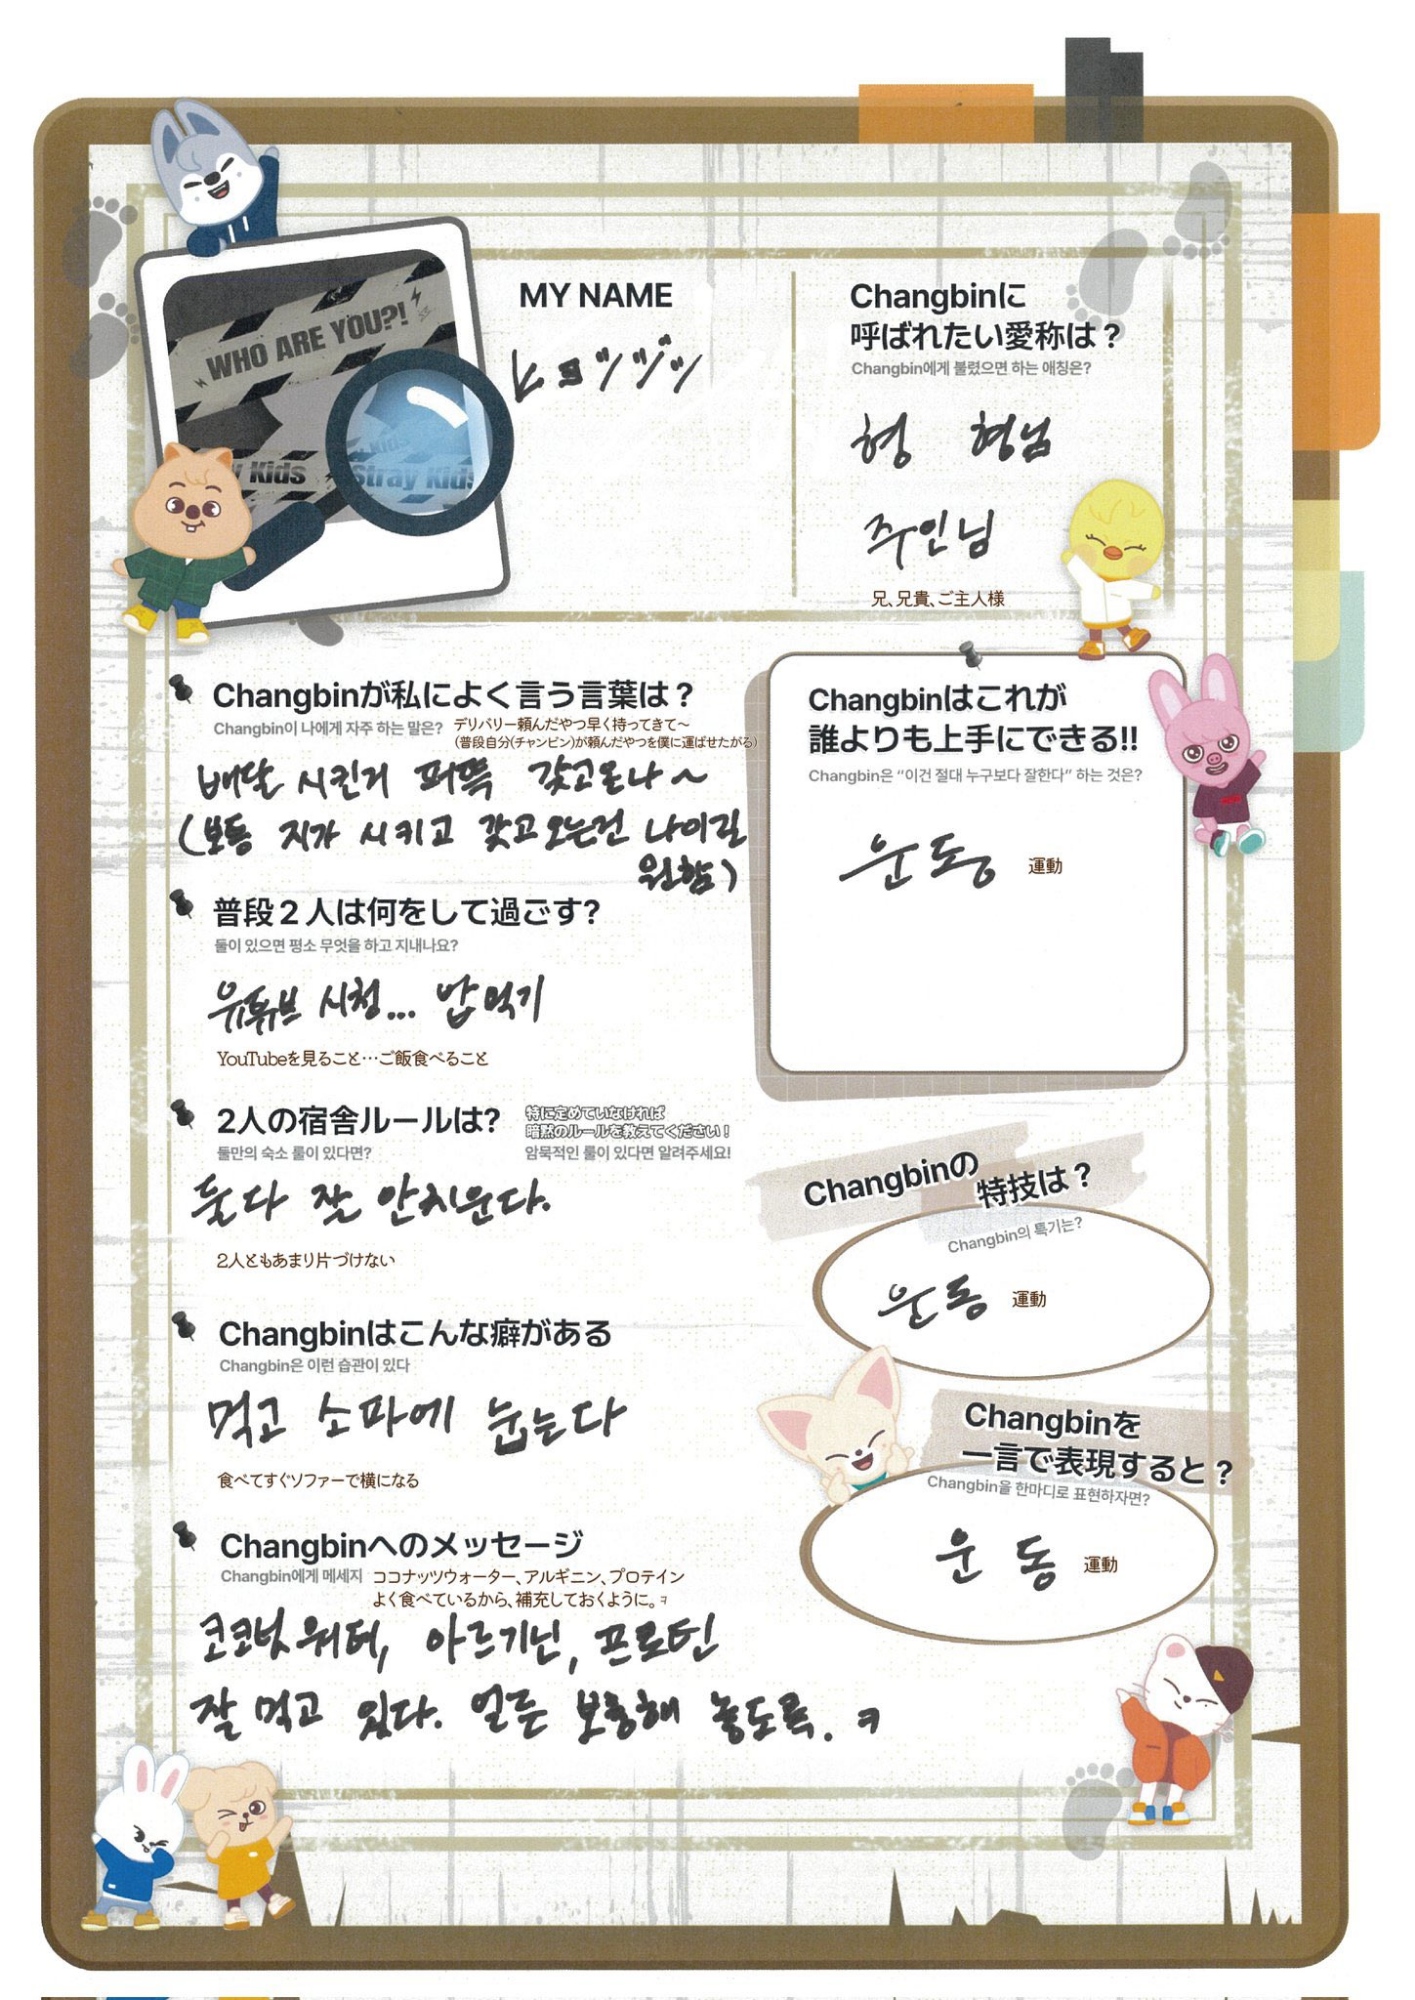 WHO ARE YOU?!
Kids
Stray Kids
MY NAME
ヒョンジン
Changbinに
呼ばれたい愛称は？
Changbin에게 불렸으면 하는 애칭은?
형 형님
주인님
兄、兄貴、ご主人様
Changbinが私によく言う言葉は？
Changbin이 나에게 자주 하는 말은?
デリバリー頼んだやつ早く持ってきて～
（普段自分(チャンビン)が頼んだやつを僕に運ばせたがる）
배달 시킨거 퍼뜩 갖고온나~
(보통 지가 시키고 갖고오는건 나이길
원함)
普段２人は何をして過ごす?
둘이 있으면 평소 무엇을 하고 지내나요?
유튜브 시청... 밥먹기
YouTubeを見ること…ご飯食べること
2人の宿舎ルールは?
둘만의 숙소 룰이 있다면?
特に定めていなければ
暗黙のルールを教えてください！
암묵적인 룰이 있다면 알려주세요!
둘다 잘 안치운다.
2人ともあまり片づけない
Changbinはこんな癖がある
Changbin은 이런 습관이 있다
먹고 소파에 눕는다
食べてすぐソファーで横になる
Changbinへのメッセージ
Changbin에게 메세지
ココナッツウォーター、アルギニン、プロテイン
よく食べているから、補充しておくように。ㅋ
코코넛워터, 아르기닌, 프로틴
잘 먹고 있다. 얼른 보충해 놓도록. ㅋ
Changbinはこれが
誰よりも上手にできる!!
Changbin은 “이건 절대 누구보다 잘한다” 하는 것은?
운동
運動
Changbinの
特技は？
Changbin의 특기는?
운동
運動
Changbinを
一言で表現すると？
Changbin을 한마디로 표현하자면?
운동
運動